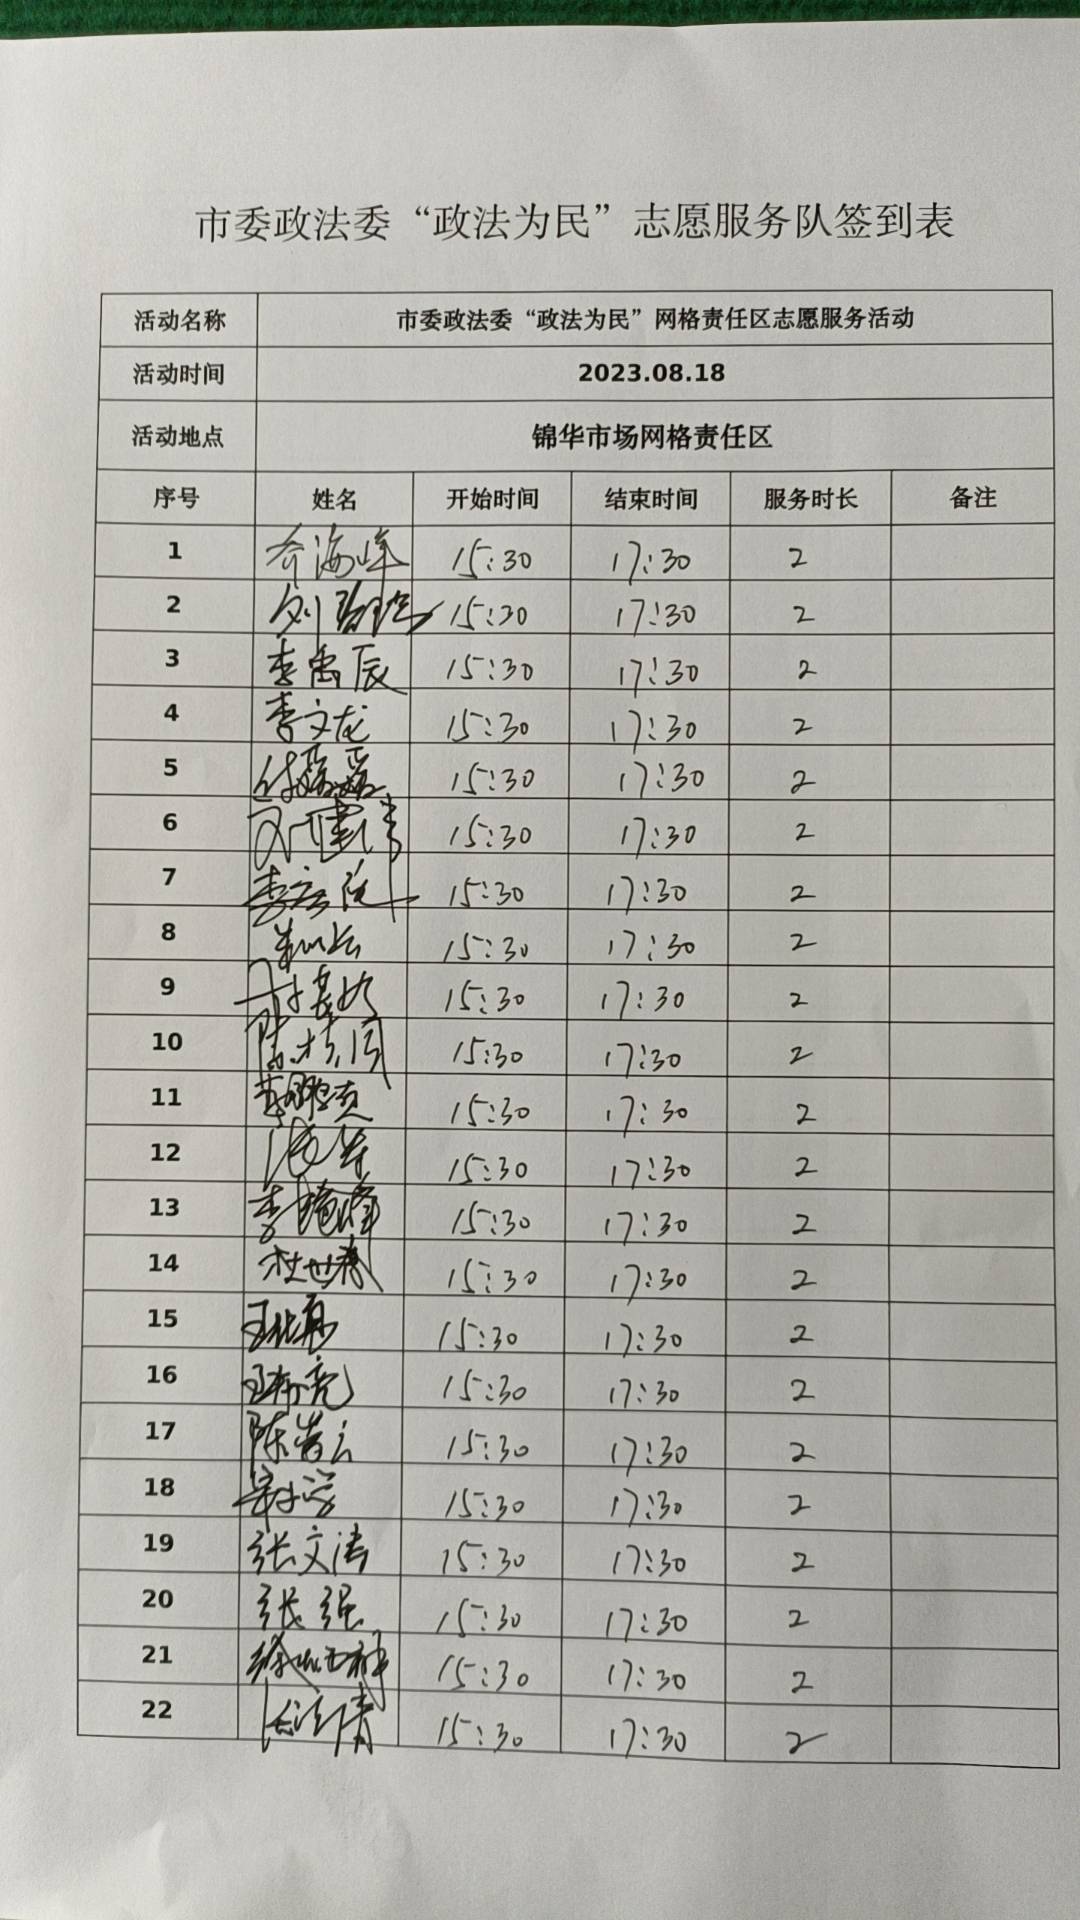 市委政法委“政法为民”志愿服务队签到表
活动名称 市委政法委“政法为民”网格责任区志愿服务活动
活动时间 2023.08.18
活动地点 锦华市场网格责任区
序号 姓名 开始时间 结束时间 服务时长 备注
1 乔海峰 15:30 17:30 2
2 15:30 17:30 2
3 李禹辰 15:30 17:30 2
4 李文龙 15:30 17:30 2
5 付磊磊 15:30 17:30 2
6 15:30 17:30 2
7 15:30 17:30 2
8 15:30 17:30 2
9 15:30 17:30 2
10 15:30 17:30 2
11 15:30 17:30 2
12 15:30 17:30 2
13 15:30 17:30 2
14 15:30 17:30 2
15 15:30 17:30 2
16 15:30 17:30 2
17 15:30 17:30 2
18 15:30 17:30 2
19 张文涛 15:30 17:30 2
20 张强 15:30 17:30 2
21 15:30 17:30 2
22 15:30 17:30 2